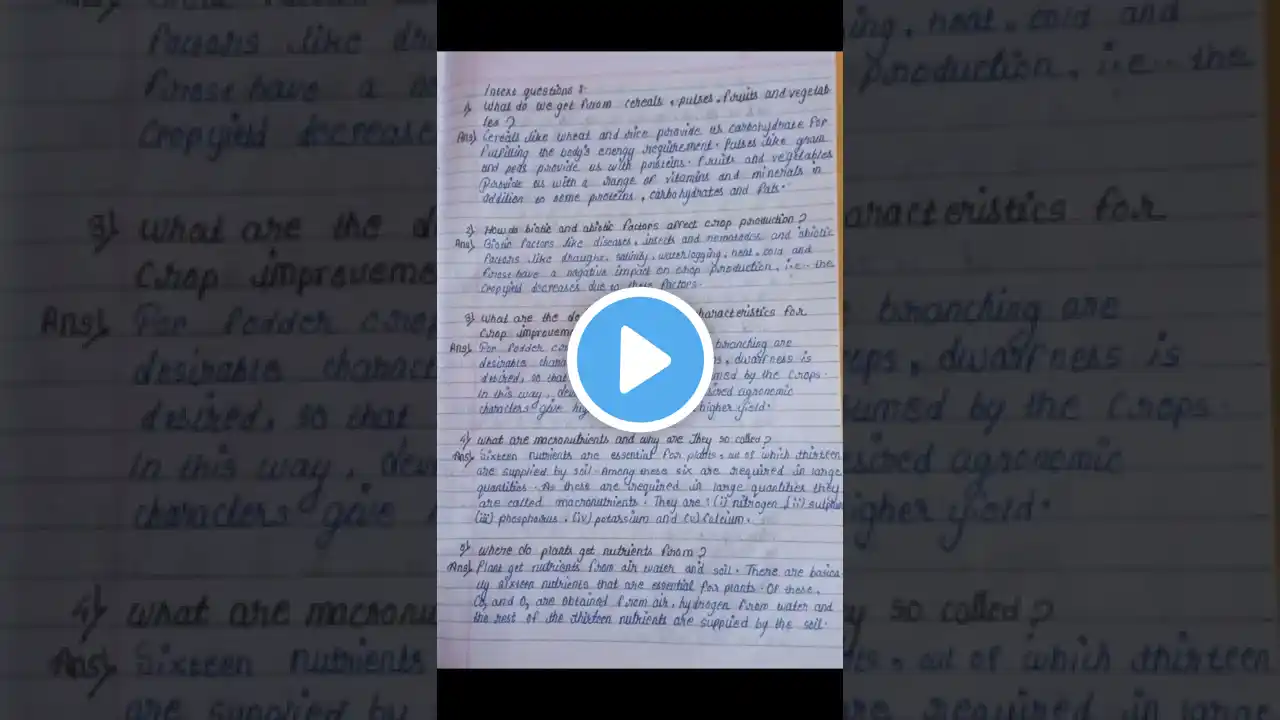 Intext questions :-
1) What do we get from cereals, pulses, fruits and vegetab
les ?
Ans) Cereals like wheat and rice provide us carbohydrate for
fulfilling the body's energy requirement. Pulses like gram
and peas provide us with proteins. fruits and vegetables
provide us with a range of vitamins and minerals in
addition to some proteins, carbohydrates and fats.
2) How do biotic and abiotic factors affect crop production ?
Ans) Biotic factors like diseases, insects and nematodes and abiotic
factors like draught, salinity, waterlogging, heat, cold and
have a negative impact on crop production, i.e.. the
Cropyield decreases due to these factors.
3) What are the de haracteristics for
Crop improveme
Ans) For fodder cro branching are
desirable charac ps, dwarfness is
desired, so that umed by the crops.
In this way, dev sired agronomic
characters give hig higher yield.
4) What are macronutrients and why are they so called ?
Ans) Sixteen nutrients are essential for plants, out of which thirteen
are supplied by soil. Among these six are required in large
quantities. As these are required in large quantities they
are called macronutrients. They are : (i) nitrogen (ii) sulphur
(iii) phosphorus, (iv) potassium and (v) Calcium.
5) Where do plants get nutrients from ?
Ans) Plant get nutrients from air water and soil. There are basica
lly sixteen nutrients that are essential for plants. Of these,
CO2 and O2 are obtained from air, hydrogen from water and
the rest of the thirteen nutrients are supplied by the soil.